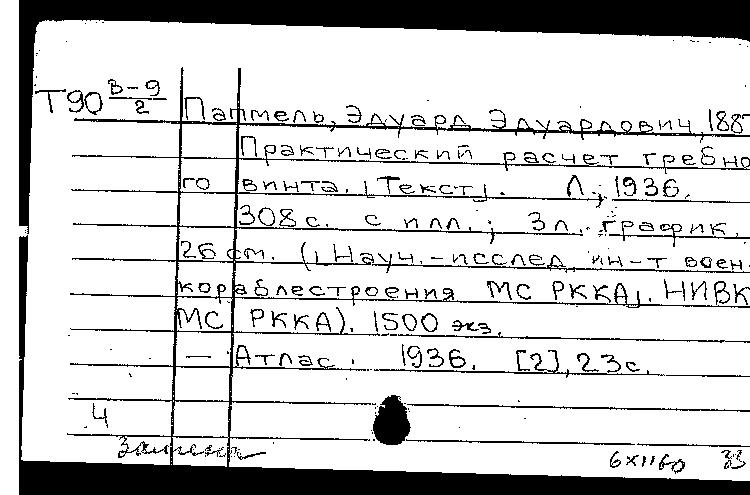 Т90 В-9/2 Папмель, Эдуард Эдуардович, 188
Практический расчет гребно
го винта. [Текст]. Л., 1936.
308 с. с илл.; 3 л. график.
26 см. ([Науч.-исслед. ин-т воен.
кораблестроения МС РККА]. НИВК
МС РККА). 1500 экз.
— Атлас. 1936. [2], 23 с.
4
Замена 6XII60 33